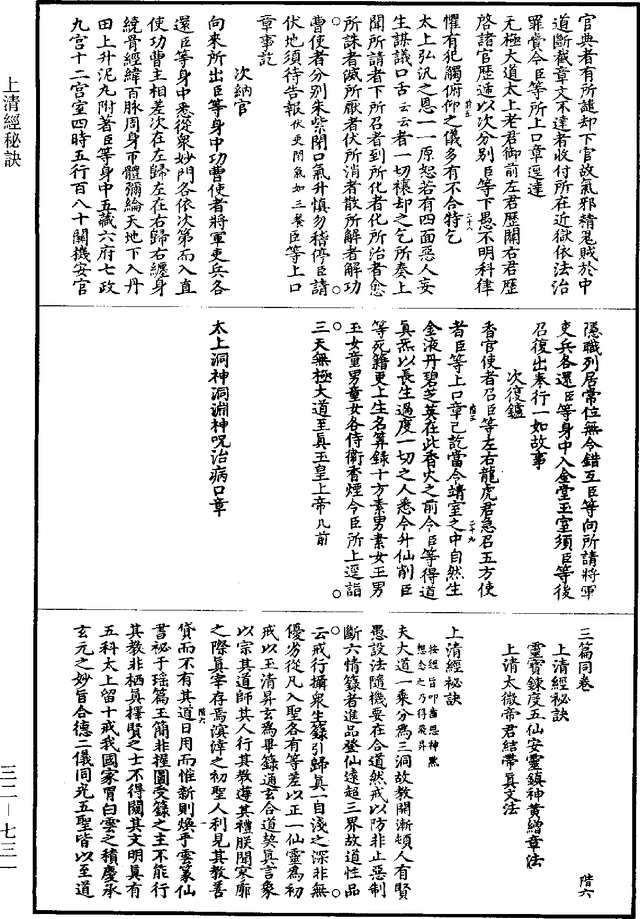 官典者有所譴却下官故氣邪精鬼賊於中
道斷截章文不達者收付所在近獄依法治
罪賞令臣等所上口章逕達
无極大道太上老君御前左君歷關右君歷
啓諸官歷遞以次分別臣等下愚不明科律
懼有犯觸俯仰之儀多有不合特乞
太上弘汎之恩一一原恕若有四面惡人妄
生謀議口舌云云者一切禳却之乞所奏上
聞所請者下所召者到所化者化所治者愈
所誅者滅所厭者伏所消者散所解者解功
曹使者分別朱紫閉口氣升慎勿稽停臣請
伏地須待告報伏更閉氣如三餐臣等上口
章事訖
次納官
向來所出臣等身中功曹使者將軍吏兵各
還臣等身中悉從衆妙門各依次第而入直
使功曹主相差次在左歸左在右歸右纏身
繞骨經緯百脉周身帀體彌綸天地下入丹
田上升泥九附著臣等身中五藏六府七政
九宮十二宮室四時五行百八十關機安官
隱職列居常位無令錯互臣等向所請將軍
吏兵各還臣等身中入金堂玉室須臣等後
召復出奉行一如故事
次復鑪
香官使者召臣等左右龍虎君急召五方使
者臣等上口章已訖當令靖室之中自然生
金液丹碧芝英在此香火之前令臣等得道
眞炁以長生過度一切之人悉令升仙削臣
等死籍更上生名筭錄十方素男素女玉男
玉女童男童女各侍衛香煙令臣所上逕詣
三天無極大道至眞玉皇上帝几前
太上洞神洞淵神呪治病口章
三篇同卷
階六
上清經秘訣
靈寶鍊度五仙安靈鎮神黃繒章法
上清太微帝君結帶眞文法
上清經秘訣
按經旨叩齒思神炁
想念之乃得飛昇
夫大道一乘分爲三洞故教開漸頓人有賢
愚設法隨機要在合道然戒以防非止惡制
斷六情籙者進品登仙達超三界故道性品
云戒行攝衆生籙引歸眞一自淺之深非無
優劣從凡入聖各有等差以正一仙靈爲初
戒以玉清昇玄爲畢籙通玄合道契眞言象
以宗其道師其人行其教蓮其禮朕聞寥廓
之際眞宰存焉溟涬之初聖人利見其教善
貸而不有其道日用而惟新則煥乎雲篆仙
書祕乎瑤篇玉簡非握圖受籙之主不能行
其教非栖眞擇賢之士不得闚其文明眞有
五科太上留十戒我國家胃白雲之積慶承
玄元之妙旨合德二儀同光五聖皆以至道
上清經秘訣
三二－七三一